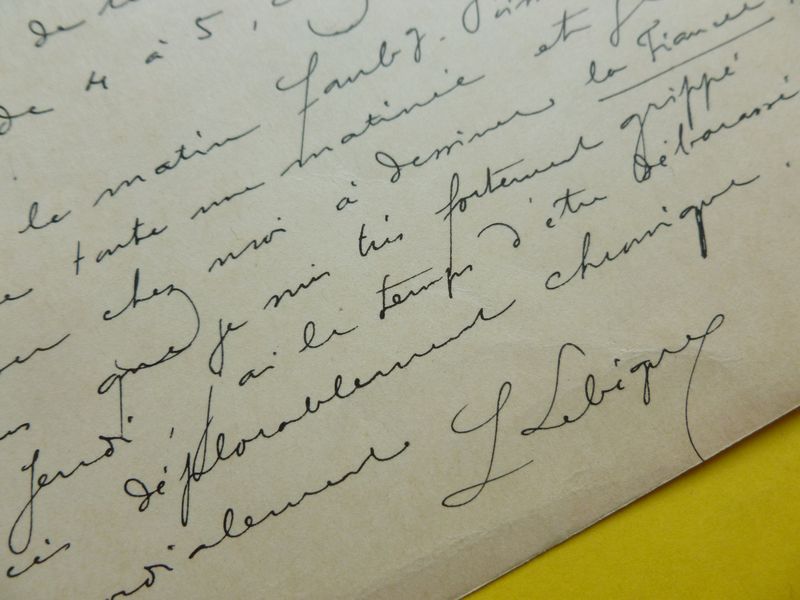 de
de 4 à 5,
le matin
toute une matinée et
chez moi à dessiner la Fiancée
que je suis très fortement grippé
Jeudi, j'ai le temps d'être débarassé
déplorablement chronique.
cordialement L Lebègue